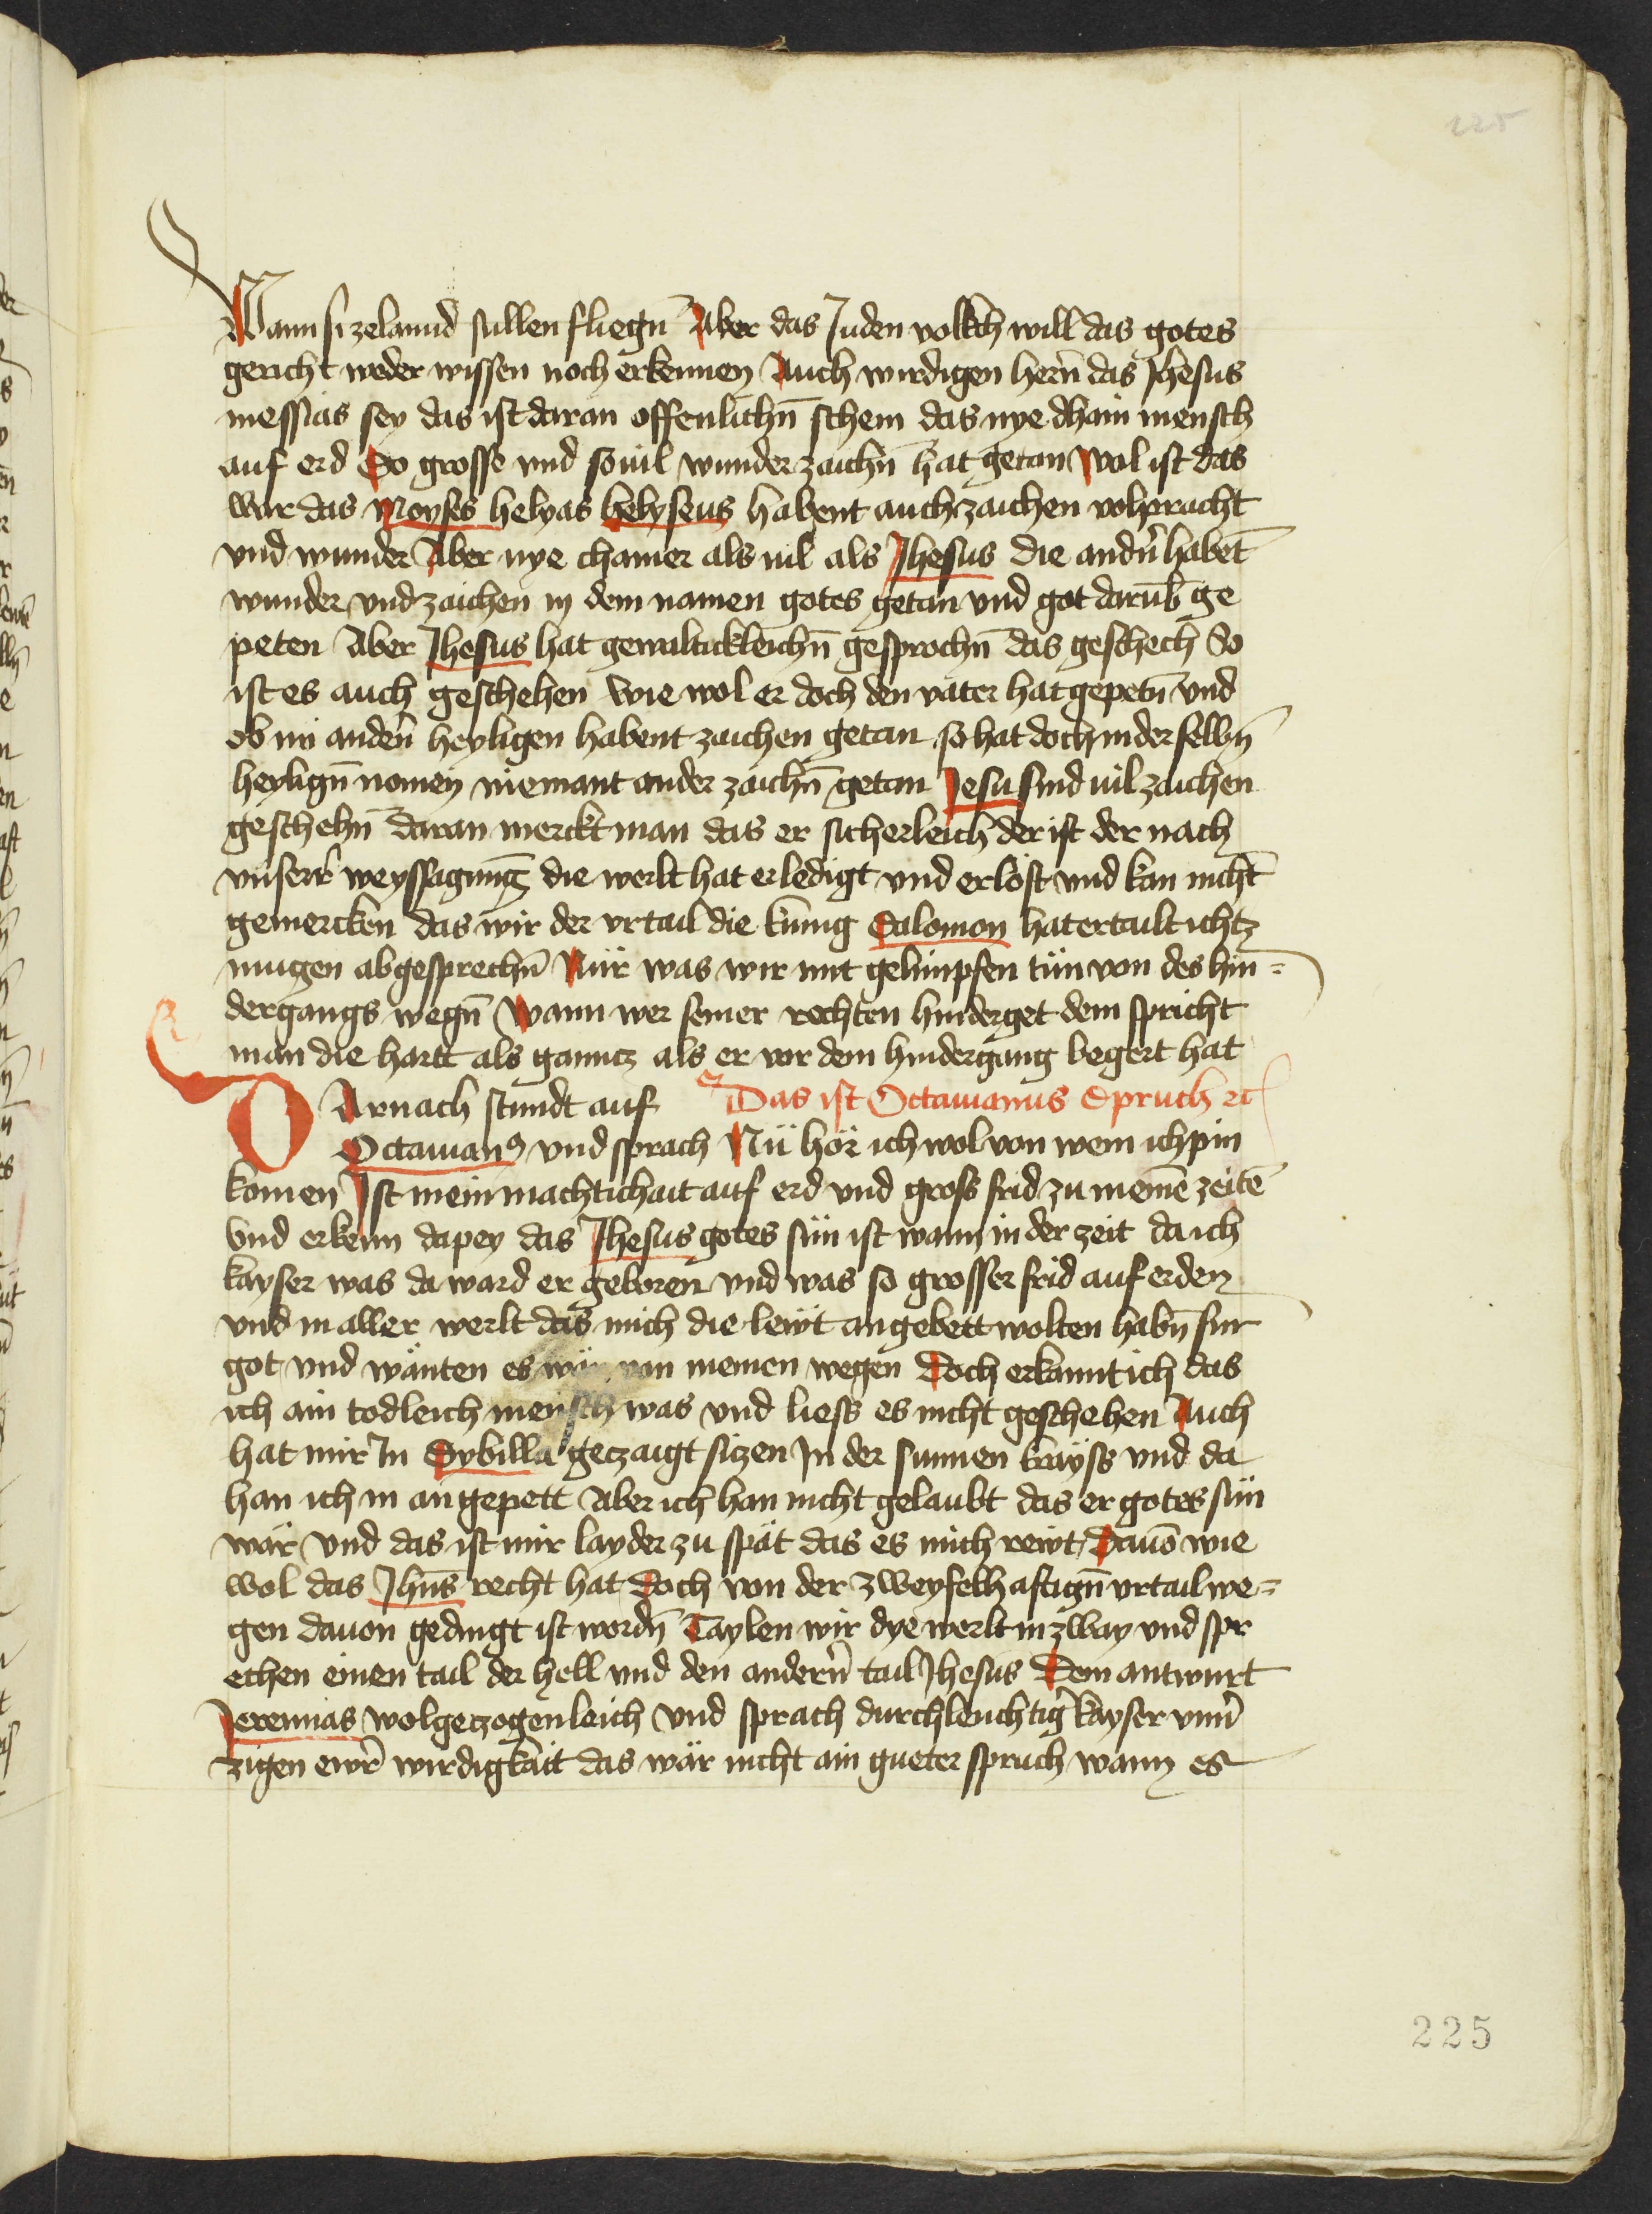 225
Wann si zelannd sullen fliegn̄ Aber das Juden volkch will das gotes
gericht weder wissen noch erkennen Auch wirdigen hern̄ das Jhesus
messias sey das ist daran offenlichn̄ schein das nye dhain mensch
auf erd So grosse vnd souil wunderzaichn̄ hat getan wol ist das
war das Moyses helyas helyseus habent auch zaichen volpracht
vnd wunder Aber nye chainer als uil als Jhesus die andn̄ habēt
wunder vnd zaichen in dem namen gotes getan vnd got darub̄ ge
peten Aber Jhesus hat gewaltickleichn̄ gesprochn̄ das geschech So
ist es auch geschehen wie wol er doch den vater hat gepetn̄ vnd
ob nu andern̄ heyligen habent zaichen getan so hat doch in der selbn̄
heylign̄ nomen niemant ander zaichn̄ getan Jesu sind uil zaichen
geschehn̄ daran merckt man das er sicherleich der ist der nach
vnserr̄ weyssagung die werlt hat erledigt vnd erlöst vnd kan nicht
gemercken das wir der vrtail die kunig Salomon hat ertailt ichtz
mugen absgesprechn̄ Nür was wir mit gelimpfen tün von des hin=
dergangs wegn̄ Wann wer seiner rechten hinderget dem spricht
man die hartt als ganncz als er vor dem hindergang begert hat
DArnach stundt auf Das ist Octauianus Spruch etc
Octauianꝰ vnd sprach Nü hör ich wol von wem ich pin
komen Ist mein machtichait auf erd vnd gross frid zu meinē zeitē
Vnd erkenn dapey das Jhesus gotes sün ist wann in der zeit da ich
kayser was da ward er geboren vnd was so grosser frid auf erden
vnd in aller werlt das mich die lewt angebett wolten habn̄ fur
got vnd wänten es wär von meinen wegen Doch erkannt ich das
ich ain todleich mensch was vnd liess es nicht geschehen Auch
hat mir In Sybilla geczaigt siczen In der sunnen krayss vnd da
han ich in angepett Aber ich han nicht gelaubt das er gotes sün
wär vnd das ist mir layder zu spät das es mich rewt Dauō wie
wol das Jhūs recht hat Doch von der zweyfelhaftign̄ vrtail we=
gen dauon gedingt ist wordn̄ Taylen wir dye werlt in zway vnd spr
echen einen tail der hell vnd den andern̄ tail Jhesus Dem antwurt
Jeremias wolgeczogenleich vnd sprach durchleuchtiḡ kayser vnū
zigen ewr̄ wirdigkait das wär nicht ain gueter spruch wann es
225